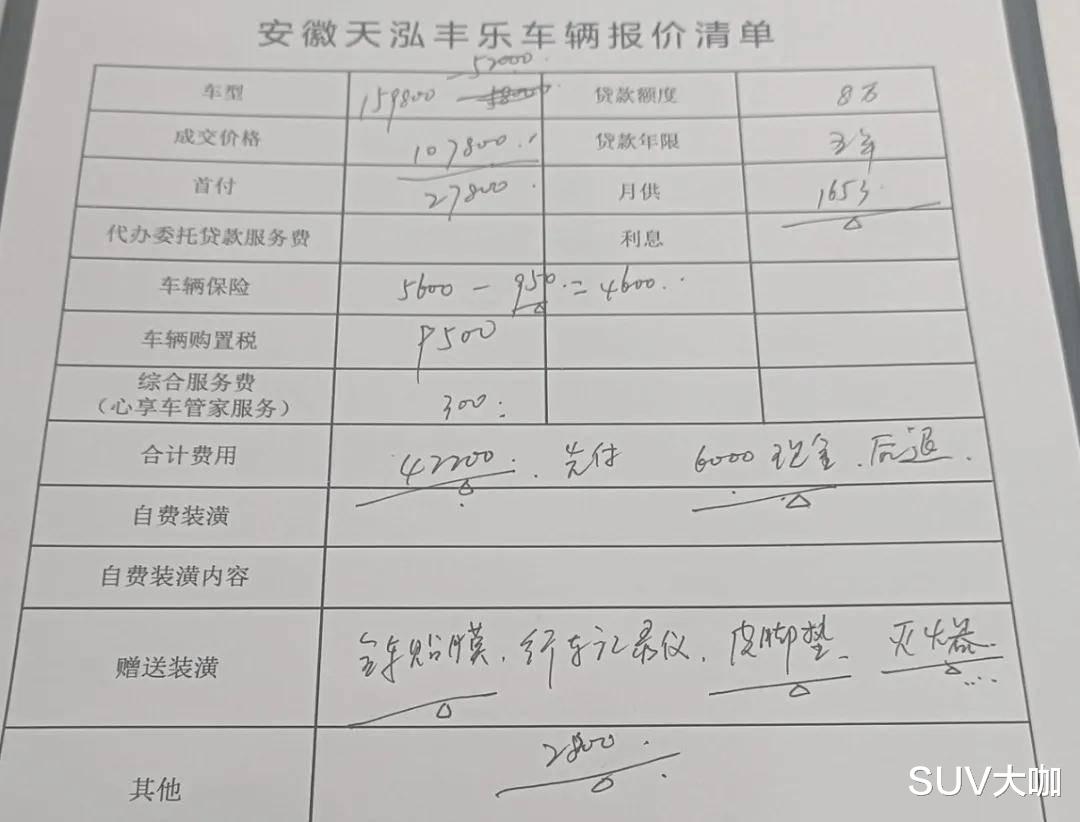 安徽天泓丰乐车辆报价清单
52000
车型 159800 贷款额度 8万
成交价格 107800 贷款年限 五年
首付 27800 月供 1653
代办委托贷款服务费 利息
车辆保险 5600 - 950 = 4600
车辆购置税 9500
综合服务费 300
（心享车管家服务）
合计费用 42200. 先付 6000 现金. 后退.
自费装潢
自费装潢内容
赠送装潢 全车贴膜. 行车记录仪. 皮脚垫. 灭火器.
其他 2800
SUV大咖